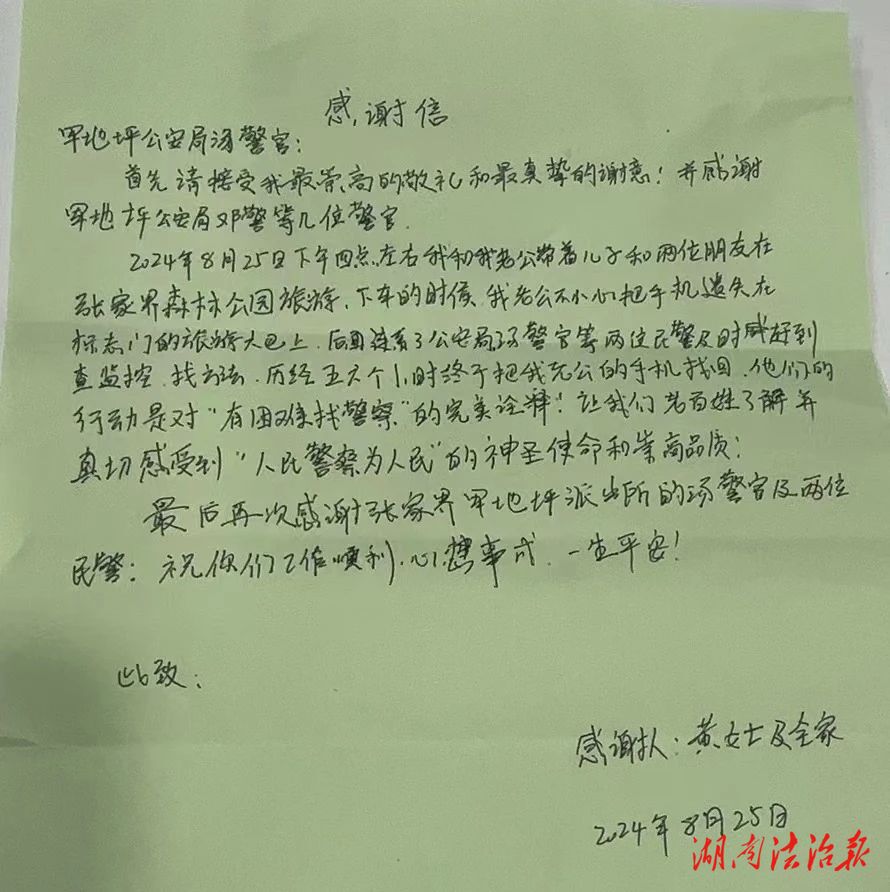 感谢信
军地坪公安局汤警官：
首先请接受我最崇高的敬礼和最真挚的谢意！并感谢
军地坪公安局邓警等几位警官.
2024年8月25日下午四点左右我和我老公带着儿子和两位朋友在
张家界森林公园旅游，下车的时候，我老公不小心把手机遗失在
标志门的旅游大巴上，后面连系了公安局汤警官等两位民警及时赶到
查监控，找方法，历经五六个小时终于把我老公的手机找回，他们的
行动是对“有困难找警察”的完美诠释！让我们老百姓了解并
真切感受到“人民警察为人民”的神圣使命和崇高品质；
最后再次感谢张家界军地坪派出所的汤警官及两位
民警；祝你们工作顺利，心想事成，一生平安！
此致；
感谢人：黄女士及全家
2024年8月25日
湖南法治报